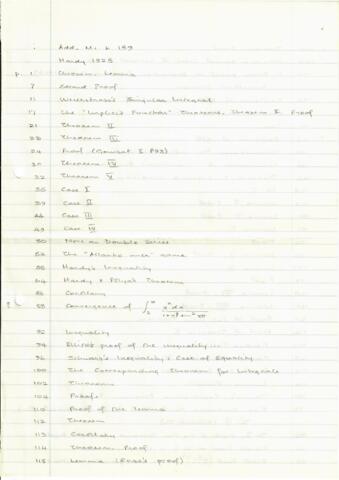 Add. Ms. b 159
Hardy 1925
p. 1 Lemma
7 Second Proof
11 Weierstrass's Singular Integral
17 The "Implicit Function" Theorems, Theorem I Proof
21 Theorem II
22 Theorem III
24 Proof (Goursat I P93)
30 Theorem IV
32 Theorem V
36 Case I
39 Case II
44 Case III
49 Case IV
50 Note on Double Series
52 The "Atlantic
55 Hardy's Inequality
64 Hardy & Pólya's Theorem
86 Corollary
88 Convergence of
92 Inequality
94 Elliott's proof of the inequality
96 Schwarz's Inequality & Case of Equality
100 The Corresponding Theorem for Integrals
102 Theorem
104 Proofs
110 Proof of the lemma
112 Theorem
113 Corollary
114 Theorem, Proof
115 Lemma (Riesz's proof)